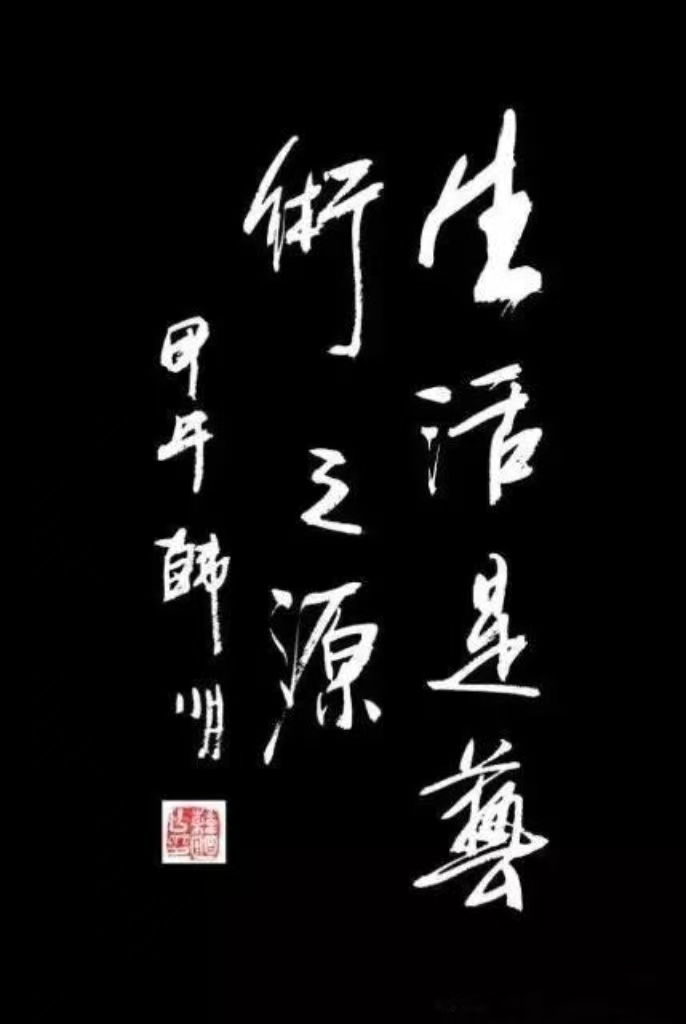 生活是藝
術之源
甲午韩